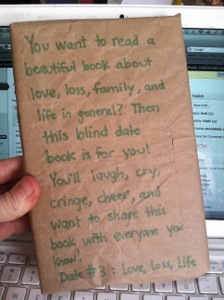 You want to read a
beautiful book about
love, loss, family, and
life in general? Then
this blind date
book is for you!
You'll laugh, cry,
cringe, cheer, and
want to share this
book with everyone you
know!
Date #3: Love, Loss, Life